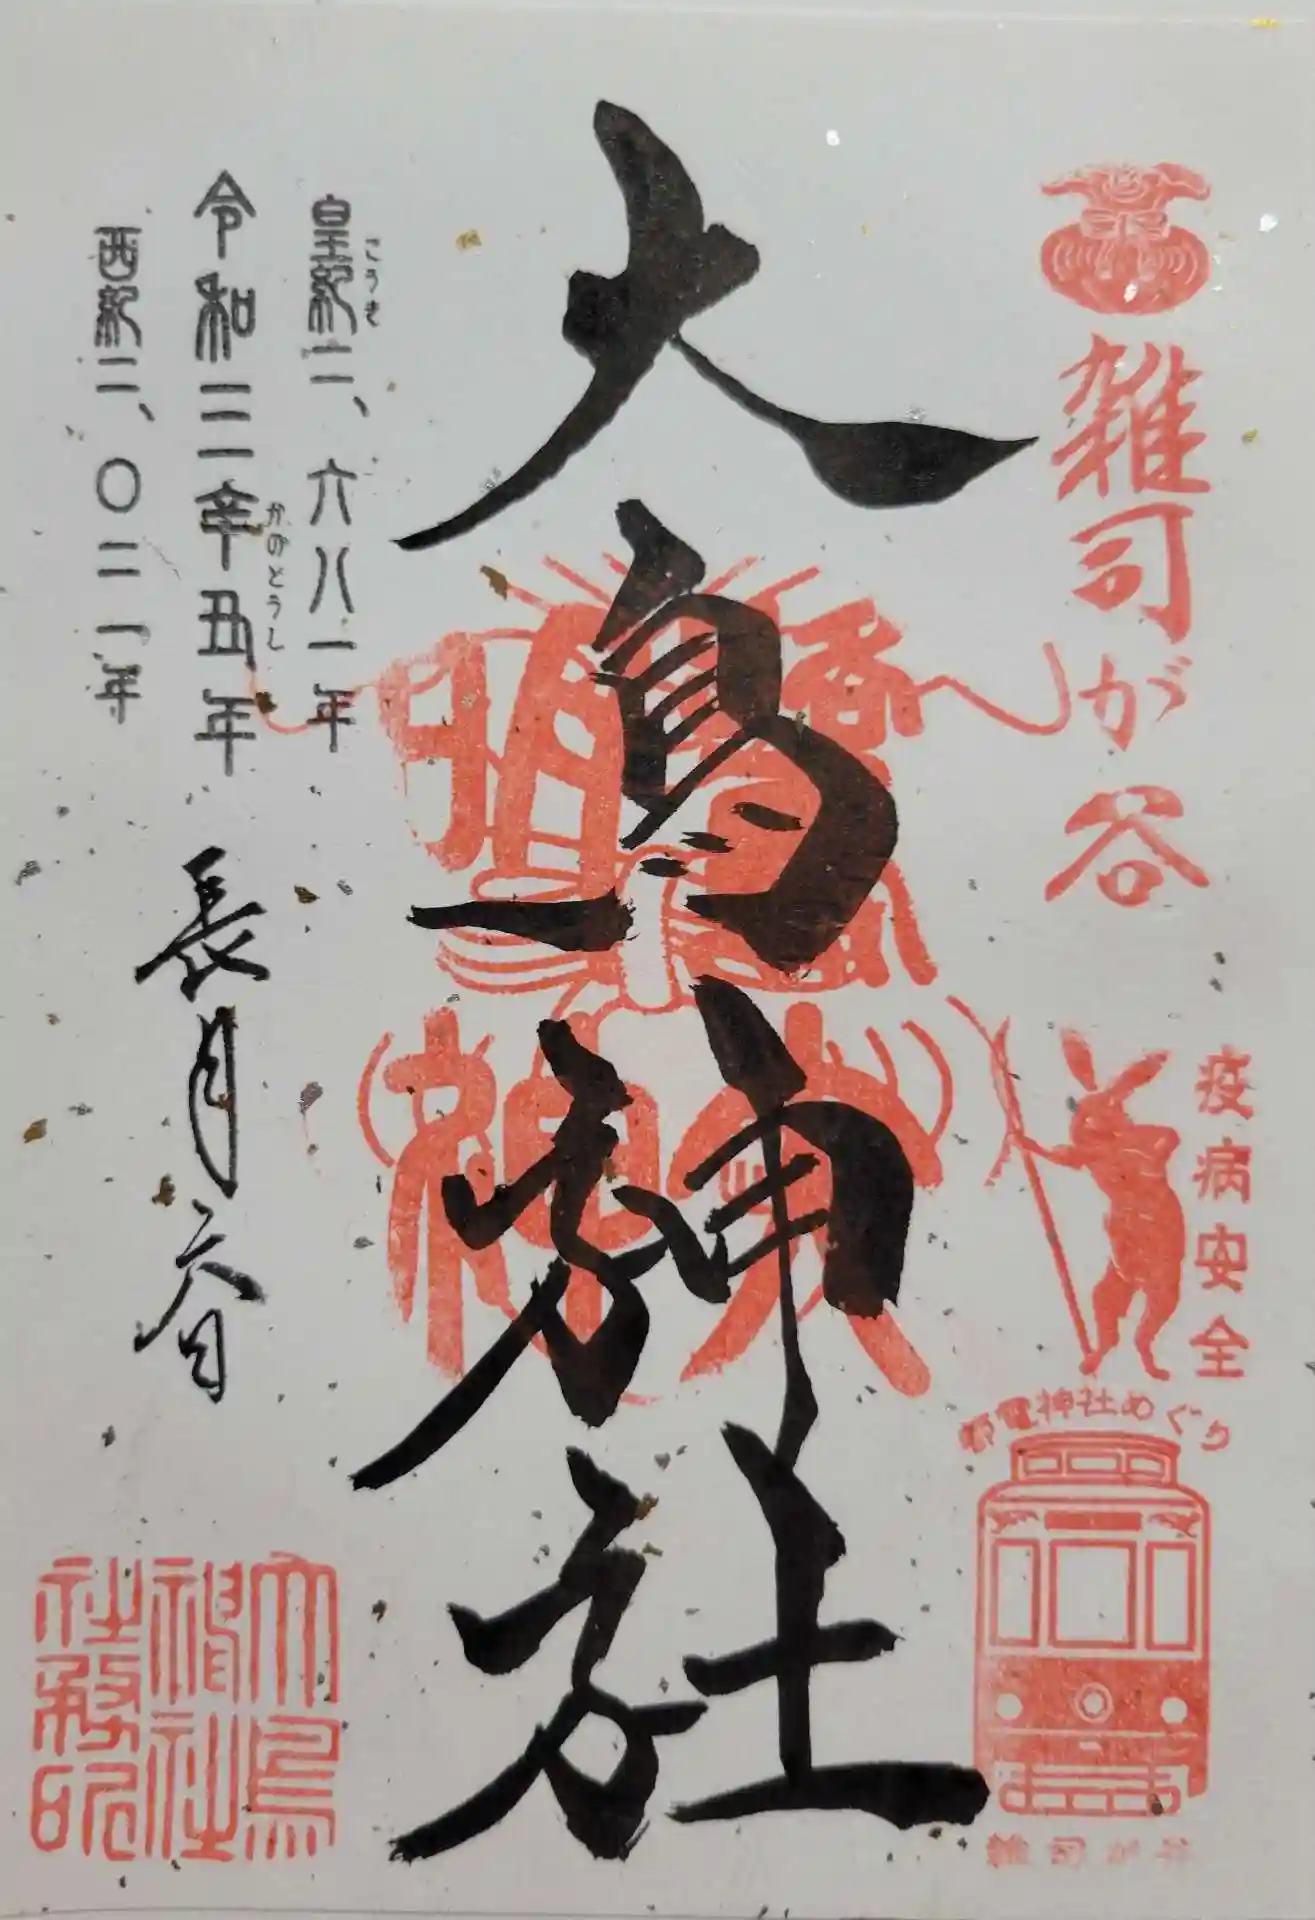 雑司が谷
疫病安全
都電神社めぐり
雑司が谷
大鳥神社
皇紀二、六八一年
こうき
令和三辛丑年 長月六日
かのとうし
西紀二、〇二一年
大鳥
神社
社務印